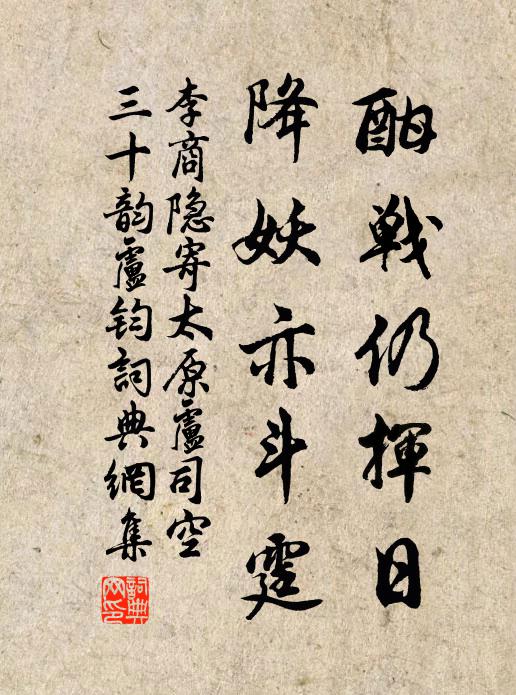 酣戰仍揮日
降妖亦斗霆
李商隐寄太原盧司空
三十韵盧鈞詞典網集
詞典网印